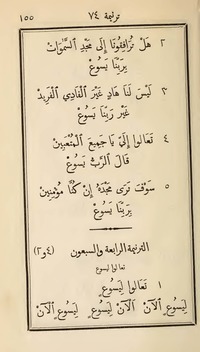 ١٥٥ ترنيمة ٧٤
٣ هَلْ تُرَافِقُونَا إِلَى مَجْدِ ٱلسَّمٰوَاتْ
بِرَبِّنَا يَسُوعْ
٣ لَيْسَ لَنَا هَادٍ غَيْرَ ٱلْفَادِي ٱلْفَرِيدْ
غَيْرَ رَبِّنَا يَسُوعْ
٤ تَعَالَوا إِلَيَّ يَا جَمِيعَ ٱلْمُتْعَبِينْ
قَالَ ٱلرَّبُّ يَسُوعْ
٥ سَوْفَ نَرَى مَجْدَهُ إِنْ كُنَّا مُؤْمِنِينْ
بِرَبِّنَا يَسُوعْ
الترنيمة الرابعة والسبعون (٤و٣)
تعالوا ليسوع
١ تَعَالَوا لِيَسُوعْ
لِيَسُوعَ ٱلآنْ ٱلآنَ لِيَسُوعْ لِيَسُوعَ ٱلآنْ